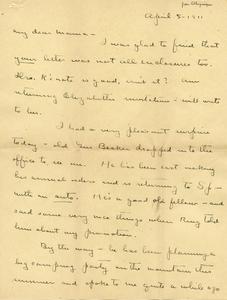 April 5 - 1911
My dear Mama -
I was glad to find that
your letter was not all enclosures too.
Mrs. K's note is good, isn't it? Am
returning Elizabeth's - will write
to her.
I had a very pleasant surprise
today - old Gus dropped into the
office to see me. He has been east making
his annual and is returning to S.F.
with an auto. He's a good old fellow - and
said some very nice things when told
him about my promotion.
By the way - he has been planning a
big camping party on the mountain this
summer and spoke to me quite a while ago